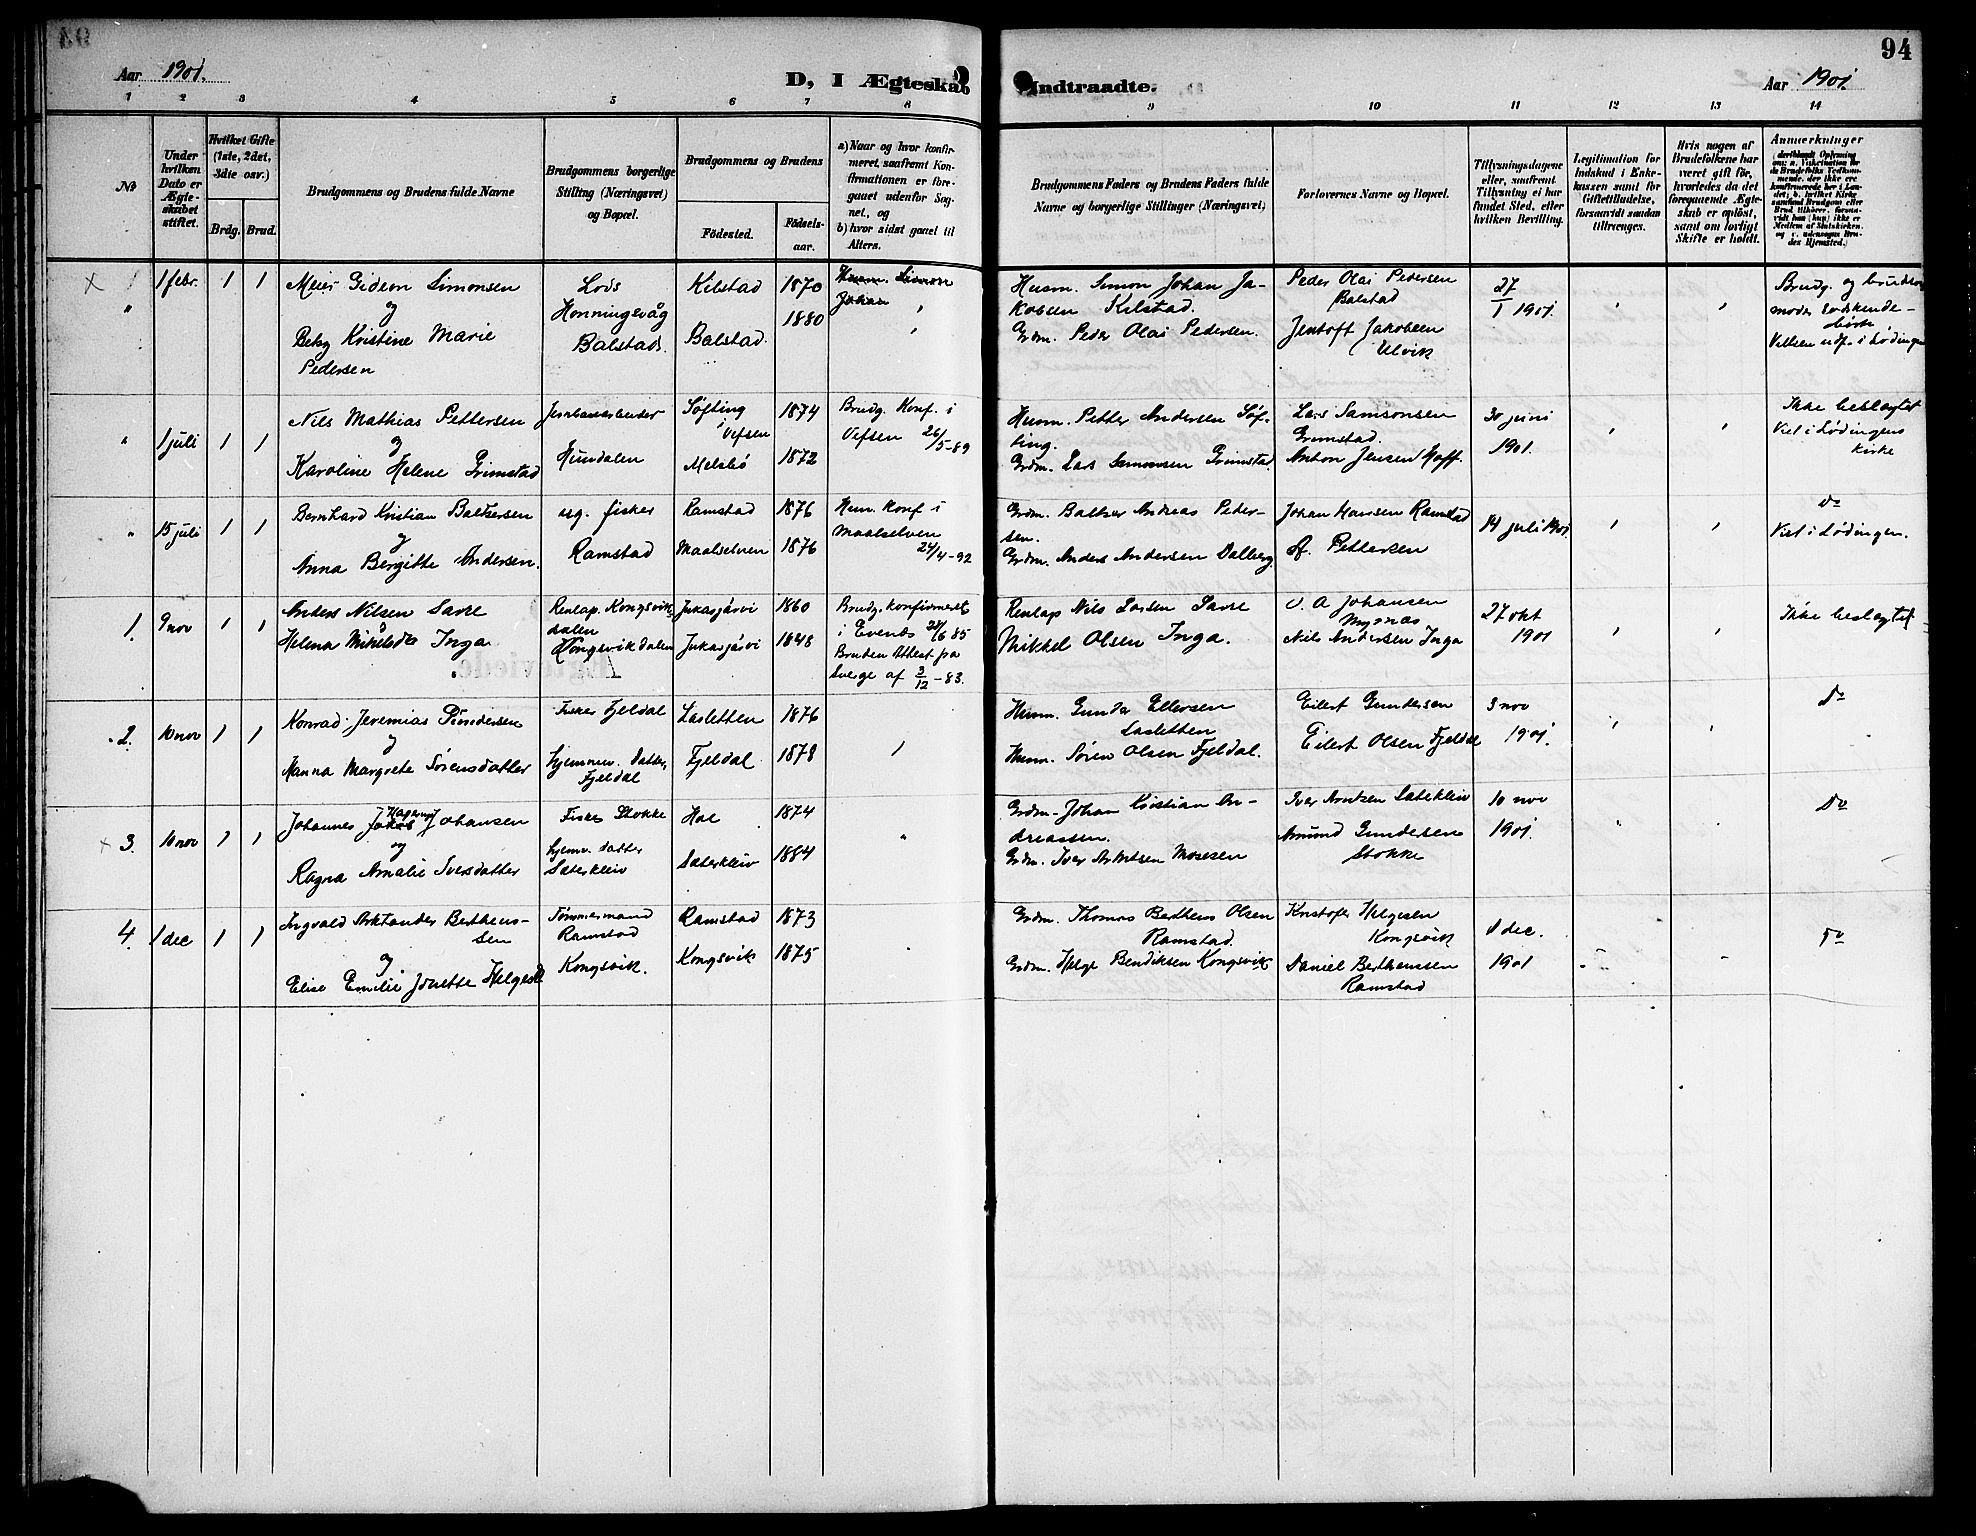 94
Aar 1901.
D, I Ægteskab
Indtraadte.
Aar 1901.
1 2 3 4 5 6 7 8 9 10 11 12 13 14
№
Under hvilken Dato er Ægteskabet stiftet.
Hvilket Gifte (1ste, 2det, 3die osv.)
Brdg. Brud.
Brudgommens og Brudens fulde Navne
Brudgommens borgerlige Stilling (Næringsvei) og Bopæl.
Brudgommens og Brudens
Födested.
Födselsaar.
a) Naar og hvor konfirmeret, saafremt Konfirmationen er foregaaet udenfor Sognet, og
b) hvor sidst gaaet til Alters.
Brudgommens Faders og Brudens Faders fulde Navne og borgerlige Stillinger (Næringsvei)
Forlovernes Navne og Bopæl.
Tillysningsdagene eller, saafremt Tillysning ei har fundet Sted, efter hvilken Bevilling.
Legitimation for Indskud i Enkekassen samt for Giftetilladelse, forsaavidt saadan tiltrænges.
Hvis nogen af Brudefolkene har været gift før, hvorledes da det foregaaende Ægteskab er opløst, samt om lovligt Skifte er holdt.
Anmerkninger
1 1 febr. 1 1
Meier Gideon Simonsen
og
Betzy Kristine Marie
Pedersen
Lods
Honningsvåg
Balstad.
Kilstad 1870
Balstad. 1880
Husm. Simon
Johan
Husm. Simon Johan Ja-
kobsen Kilstad.
Grdm. Peder Olai Pedersen.
Peder Olai Pedersen
Balstad
Jentoft Jakobsen
Ulvik
27/1 1901.
Brudg. og brudens
moder sødskende-
børn
Vielsen udf. i Lødingen
" 1 juli 1 1
Nils Mathias Pettersen
og
Karoline Helene Grimstad
Jernbanearbeider
Hundalen
Søfting
i Vefsen 1874
Melsbö 1872
Brudg. Konf. i
Vefsen 26/5-89
Husm. Petter Andersen Søf-
ting.
Grdm. Lars Samonsen Grimstad
Lars Samsonsen
Grimstad.
Anton Jensen Hoff.
30 juni
1901.
Ikke beslægtet
Viet i Lødingens
Kirke
" 15 juli 1 1
Bernhard Kristian Baltsersen
og
Anna Bergitte Andersen.
ug. fisker
Ramstad
Ramstad 1876
Maalselven 1876
Hun konf i
Maalselven
24/4-92
Grdm. Baltser Andreas Peter-
sen.
Grdm. Anders Andersen Dalberg.
Johan Hansen Ramstad
A. Pettersen
14 juli 1901.
Do
Viet i Lødingen.
1. 9 nov 1 1
Anders Nilsen Sarre
Helena Mikelsdtr Inga
Renlap. Kongsvik-
dalen
Kongsvikdalen
Jukasjärvi 1860
Jukasjärvi 1848
Brudg. konfirmeret
i Evenes 24/6 85
Bruden Attest fra
Sverge af 3/12-83.
Renlap Nils Larsen Sarre
Mikkel Olsen Inga.
O. A Johansen
Myrnas
Nils Andersen Inga
27 okt
1901
Ikke beslægtet
2. 10 nov 1 1
Konrad Jeremias Gundersen
og
Hanna Margrete Sörensdatter
Fisker Fjeldal
hjemmev. datter,
Fjeldal
Lasletten 1876
Fjeldal 1878
Husm. Gunder Ellersen
Lasletten
Husm. Sören Olsen Fjeldal.
Eilert Gundersen
Eilert Olsen Fjeldal
3 nov
1901.
Do
3. 10 nov 1 1
Johannes Jakob Hagerup Johansen
og
Ragna Amalie Iversdatter
Fisker Stokke
hjemv. datter
Sæterkleiv
Hol 1874
Sæterkleiv 1884
Grdm. Johan Kristian An-
dreassen.
Grdm. Iver Arntsen Mosesen
Iver Arntsen Sæterkleiv
Amund Gundersen
Stokke
10 nov
1901.
Do
4. 1 dec 1 1
Ingvald Arktander Bertheus-
sen
og
Elise Emelie Jonette Helgesd
Tømmermand
Ramstad
Kongsvik.
Ramstad 1873
Kongsvik 1875
Grdm. Thomas Bertheus Olsen
Ramstad.
Grdm. Helge Bendiksen Kongsvik
Kristofer Helgesen
Kongsvik
Daniel Bertheussen
Ramstad
1 dec.
1901
Do